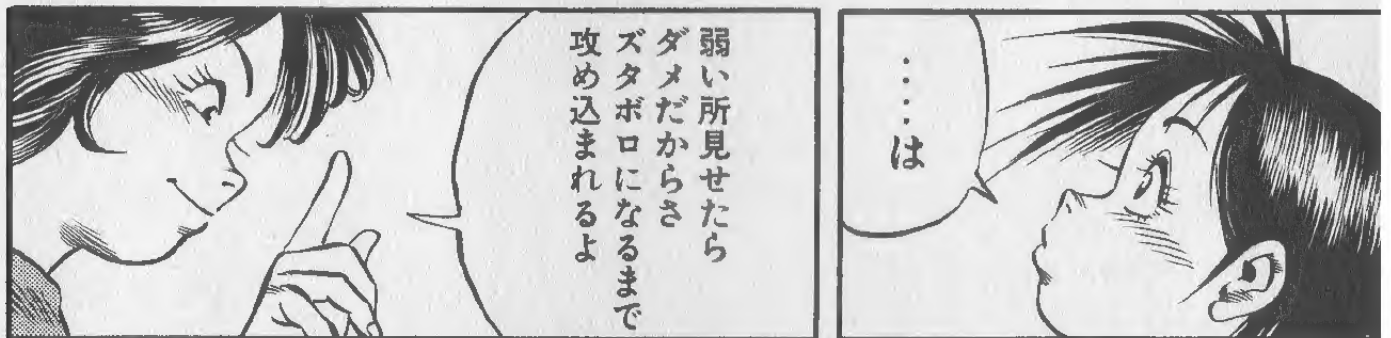 ‥‥は
弱い所見せたら
ダメだからさ
ズタボロになるまで
攻め込まれるよ